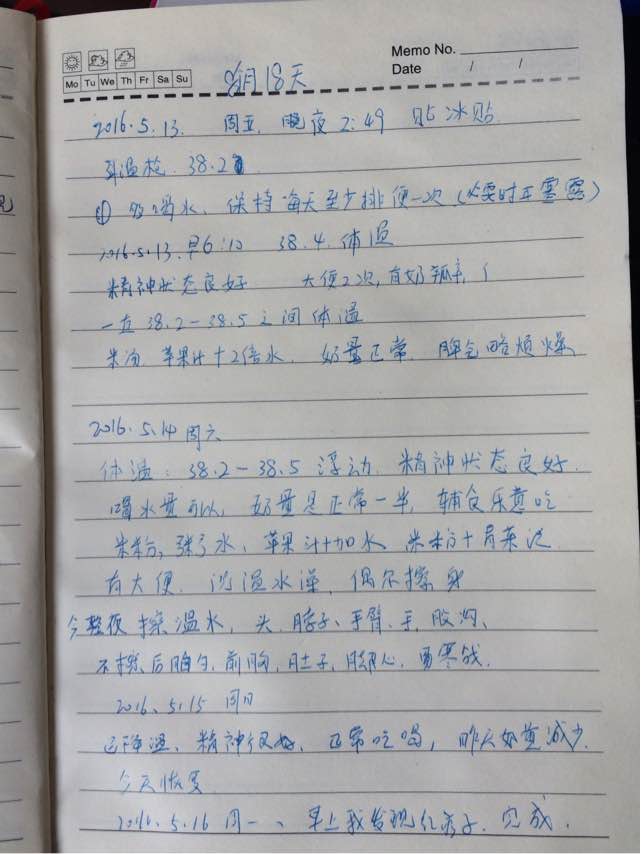 Memo No.
Mo Tu We Th Fr Sa Su
Date / /
8月18天
2016.5.13. 周五, 晚夜 2:49 贴冰贴
耳温枪. 38.2
① 多喝水、保持每天至少排便一次 (必要时开塞露)
2016.5.13.早6:10 38.4.体温
精神状态良好 大便2次,有奶瓣,
一直 38.2-38.5 之间体温
米汤 苹果汁+2倍水. 奶量正常. 脾气略烦燥
2016.5.14 周六
体温: 38.2-38.5 浮动. 精神状态良好.
喝水量可以, 奶量是正常一半, 辅食乐意吃
米粉, 水, 苹果汁加水 米粉+青菜泥
有大便. 洗温水澡, 偶尔擦身
今整夜 擦温水, 头, 脖子、手臂.手,
不擦后胸勺, 前胸, 肚子, 脚心, 寒战.
2016.5.15 周日
已降温、精神很好、正常吃喝, 昨天奶量减少.
今天恢复
2016.5.16 周一、早上我发现红疹子. 完成.